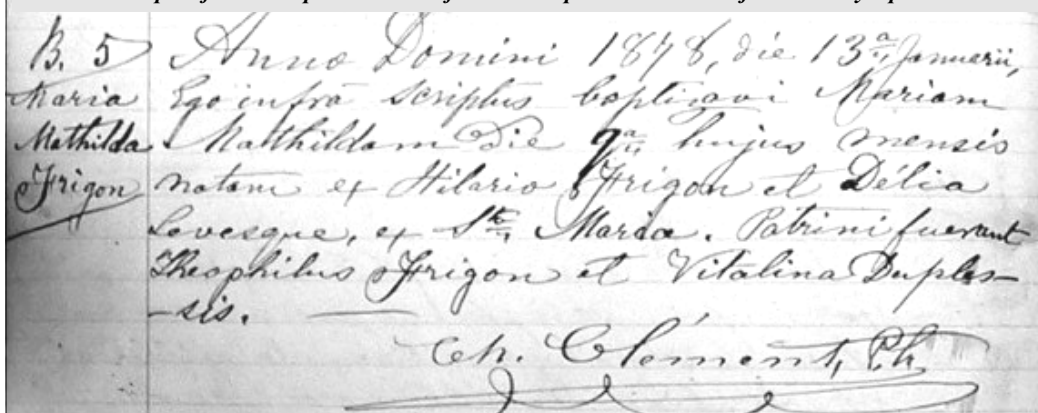 B. 5
Maria
Mathilda
Frigon
Anno Domini 1878, die 13a Januarii,
Ego infrà scriptus baptisavi Mariam
Mathildam die 9a hujus mensis
natam ex Hilario Frigon et Délia
Levesque, ex Ste Marda. Patrini fuerunt
Theophilus Frigon et Vitalina Duples-
-sis.
Ch. Clément, Ph